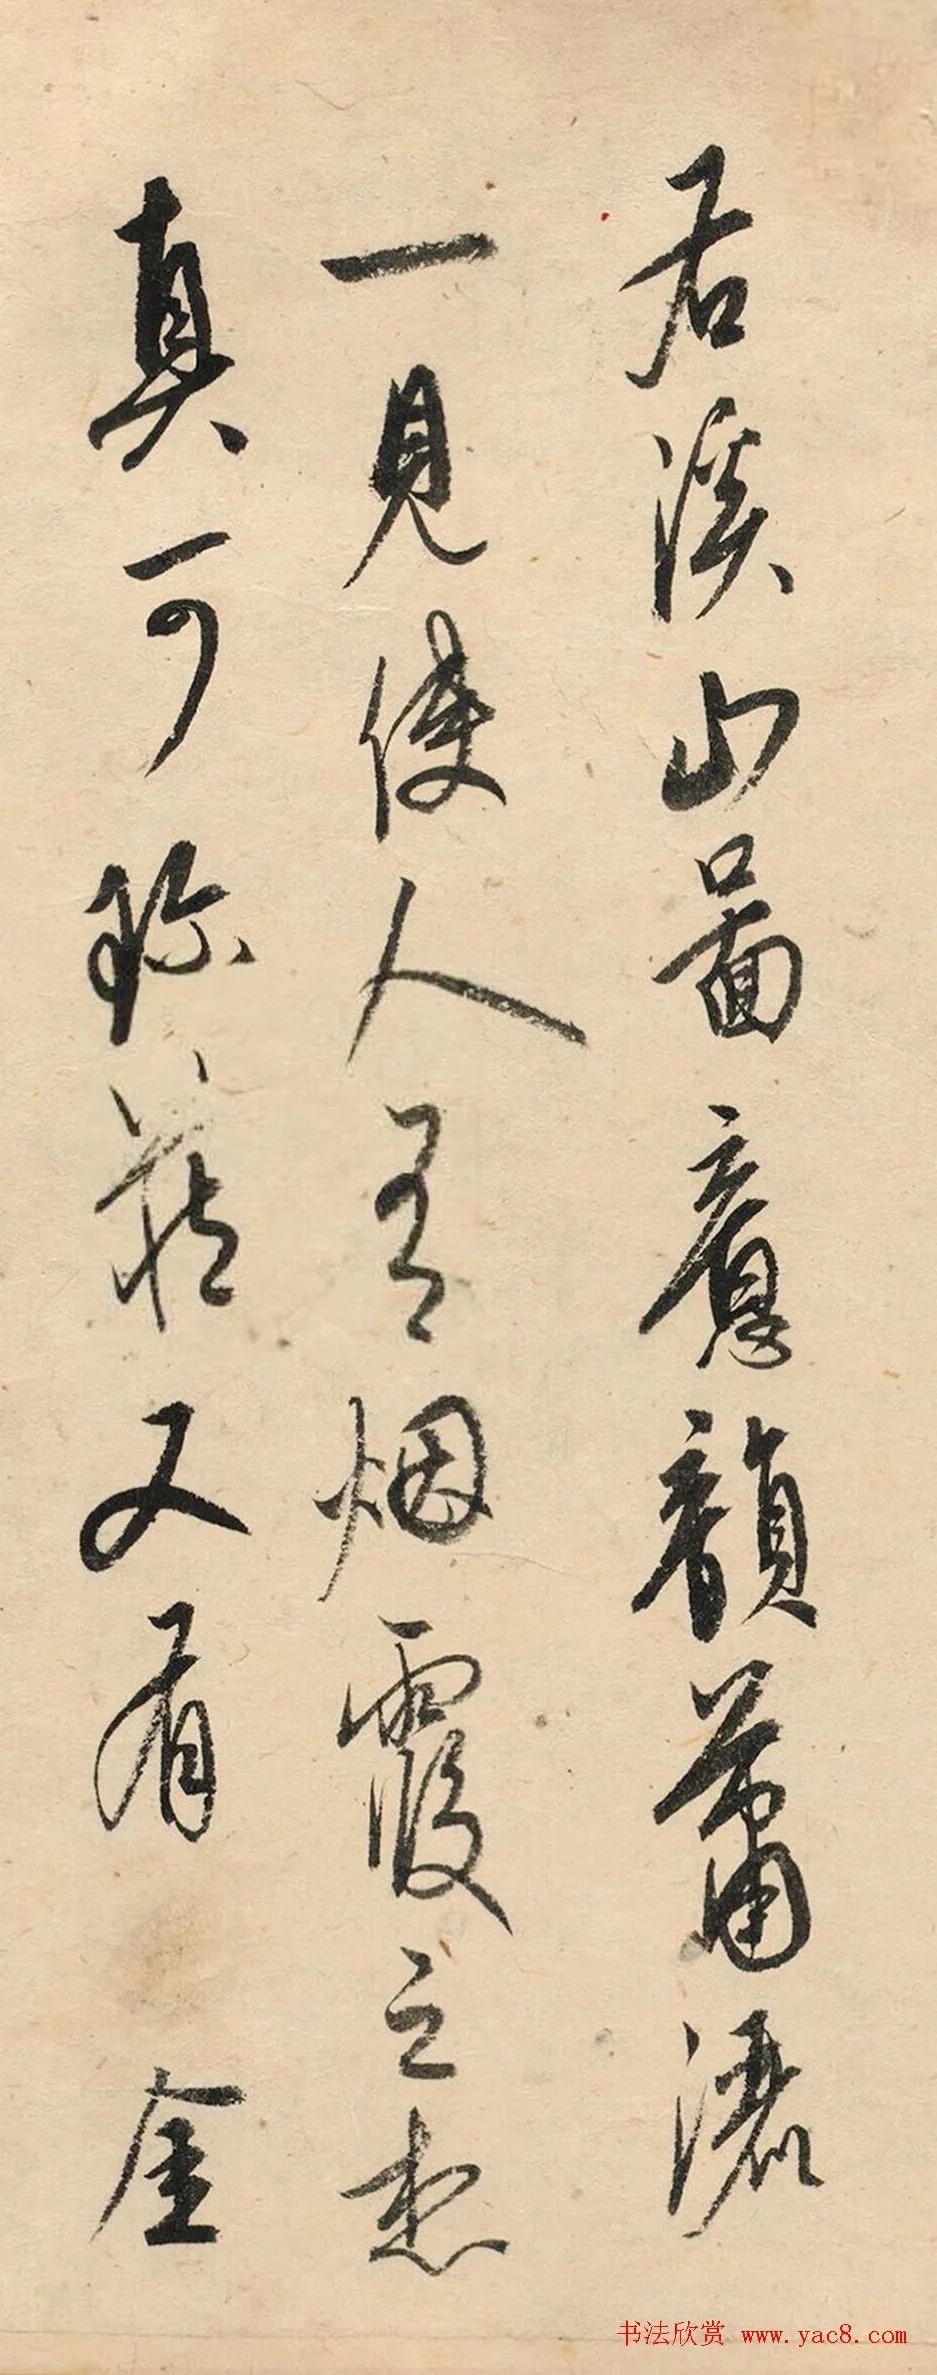 右溪山圖意韻蕭灑
一見使人有烟霞之想
真可珍藏又有金
书法欣赏 www.yac8.com